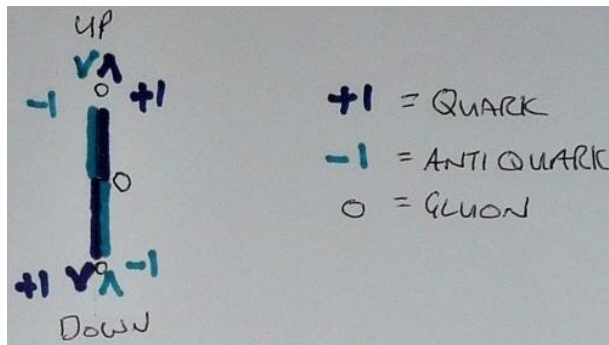 UP
-1
+1
+1
-1
DOWN
+1 = QUARK
-1 = ANTIQUARK
O = GLUON